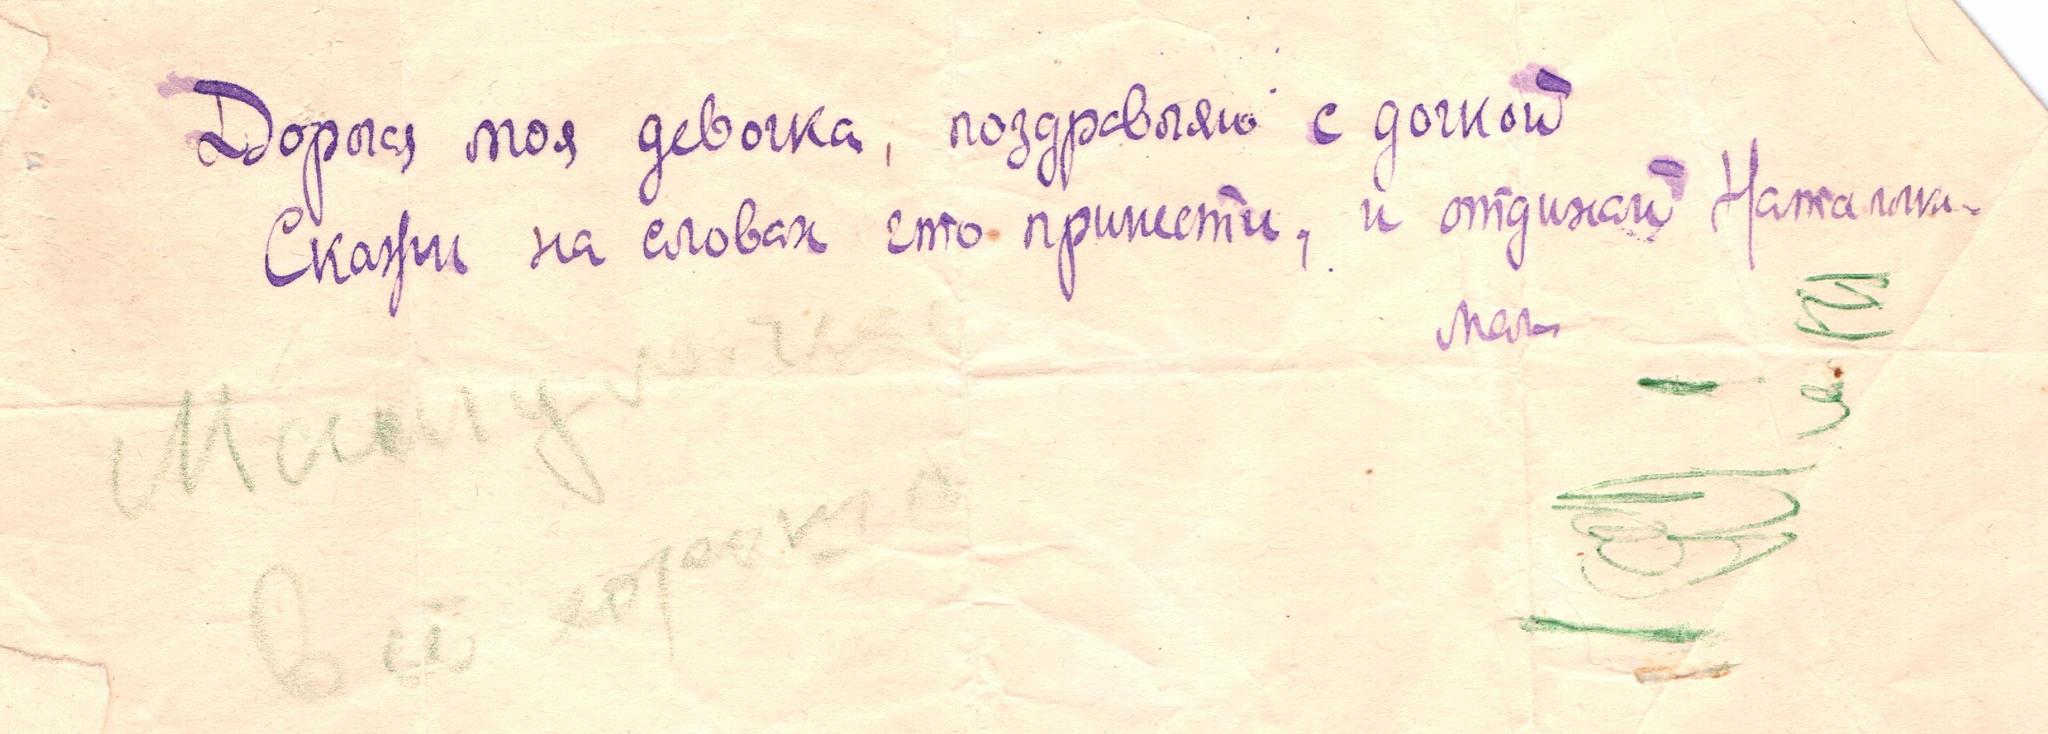 Дорыая моя девочка, поздравляю с дочкой
Скажи на словах что принести, и отдихай Наталка
мам
Мамулечка
Всё хорошо